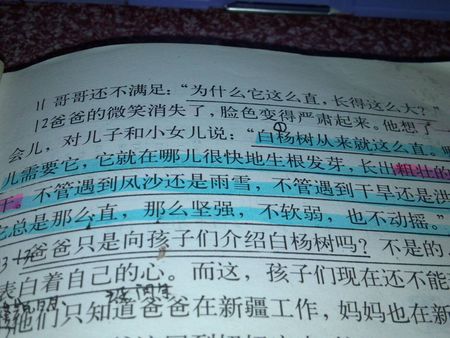 11 哥哥还不满足：“为什么它这么直，长得这么大？”
12 爸爸的微笑消失了，脸色变得严肃起来。他想了
会儿，对儿子和小女儿说：“①白杨树从来就这么直。
儿需要它，它就在哪儿很快地生根发芽，长出粗壮的
干。不管遇到风沙还是雨雪，不管遇到干旱还是洪
它总是那么直，那么坚强，不软弱，也不动摇。”
13 爸爸只是向孩子们介绍白杨树吗？不是的，
表白着自己的心。而这，孩子们现在还不能
他们只知道爸爸在新疆工作，妈妈也在新